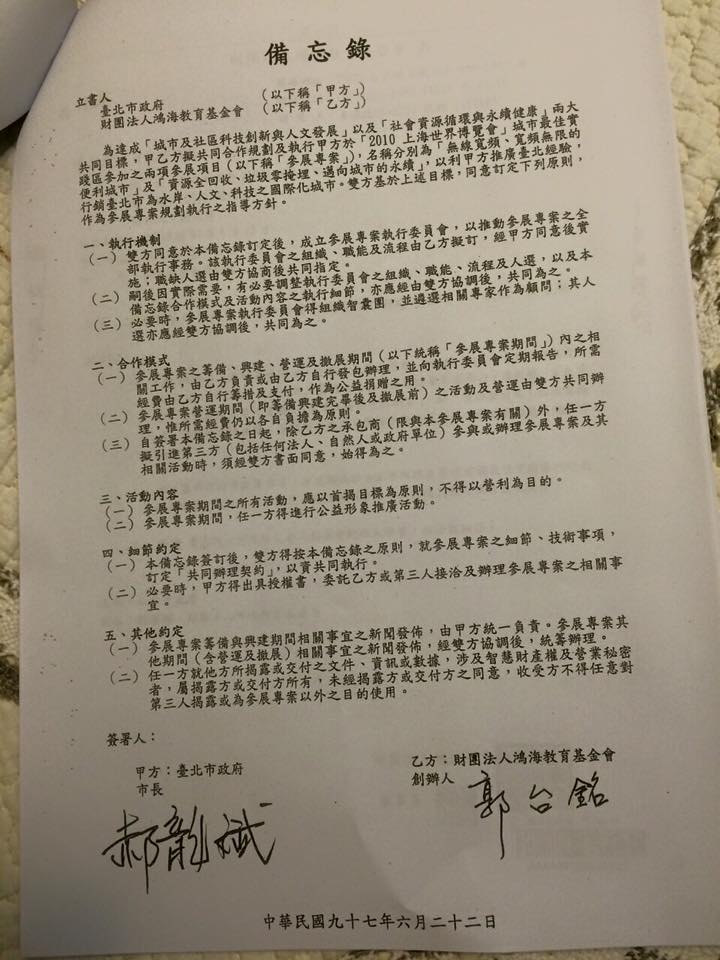 備忘錄
立書人
臺北市政府 (以下稱「甲方」)
財團法人鴻海教育基金會 (以下稱「乙方」)
為達成「城市及社區科技創新與人文發展」以及「社會資源循環與永續健康」兩大
共同目標,甲乙方擬共同合作規劃及執行甲方於「2010 上海世界博覽會」城市最佳實
踐區參加之兩項參展項目(以下稱「參展專案」),名稱分別為「無線寬頻、寬頻無限的
便利城市」及「資源全回收、垃圾零掩埋、邁向城市的永續」,以利甲方推廣臺北經驗,
行銷臺北市為水岸、人文、科技之國際化城市。雙方基於上述目標,同意訂定下列原則,
作為參展專案規劃執行之指導方針。
一、執行機制
(一) 雙方同意於本備忘錄訂定後,成立參展專案執行委員會,以推動參展專案之全
部執行事務。該執行委員會之組織、職能及流程由乙方擬訂,經甲方同意後實
施;職缺人選由雙方協商後共同指定。
(二) 嗣後因實際需要,有必要調整執行委員會之組織、職能、流程及人選,以及本
備忘錄合作模式及活動內容之執行細節,亦應經由雙方協調後,共同為之。
(三) 必要時,參展專案執行委員會得組織智囊團,並遴選相關專家作為顧問;其人
選亦應經雙方協調後,共同為之。
二、合作模式
(一) 參展專案之籌備、興建、營運及撤展期間(以下統稱「參展專案期間」)內之相
關工作,由乙方負責或由乙方自行發包辦理,並向執行委員會定期報告,所需
經費由乙方自行籌措及支付,作為公益捐贈之用。
(二) 參展專案營運期間(即籌備興建完畢後及撤展前)之活動及營運由雙方共同辦
理,惟所需經費仍以各自負擔為原則。
(三) 自簽署本備忘錄之日起,除乙方之承包商(限與本參展專案有關)外,任一方
擬引進第三方(包括任何法人、自然人或政府單位)參與或辦理參展專案及其
相關活動時,須經雙方書面同意,始得為之。
三、活動內容
(一) 參展專案期間之所有活動,應以首揭目標為原則,不得以營利為目的。
(二) 參展專案期間,任一方得進行公益形象推廣活動。
四、細節約定
(一) 本備忘錄簽訂後,雙方得按本備忘錄之原則,就參展專案之細節、技術事項,
訂定「共同辦理契約」,以資共同執行。
(二) 必要時,甲方得出具授權書,委託乙方或第三人接洽及辦理參展專案之相關事
宜。
五、其他約定
(一) 參展專案籌備與興建期間相關事宜之新聞發佈,由甲方統一負責。參展專案其
他期間(含營運及撤展)相關事宜之新聞發佈,經雙方協調後,統籌辦理。
(二) 任一方就他方所揭露或交付之文件、資訊或數據,涉及智慧財產權及營業秘密
者,屬揭露方或交付方所有,未經揭露方或交付方之同意,收受方不得任意對
第三人揭露或為參展專案以外之目的使用。
簽署人:
甲方:臺北市政府
市長
郝龍斌
乙方:財團法人鴻海教育基金會
創辦人
郭台銘
中華民國九十七年六月二十二日